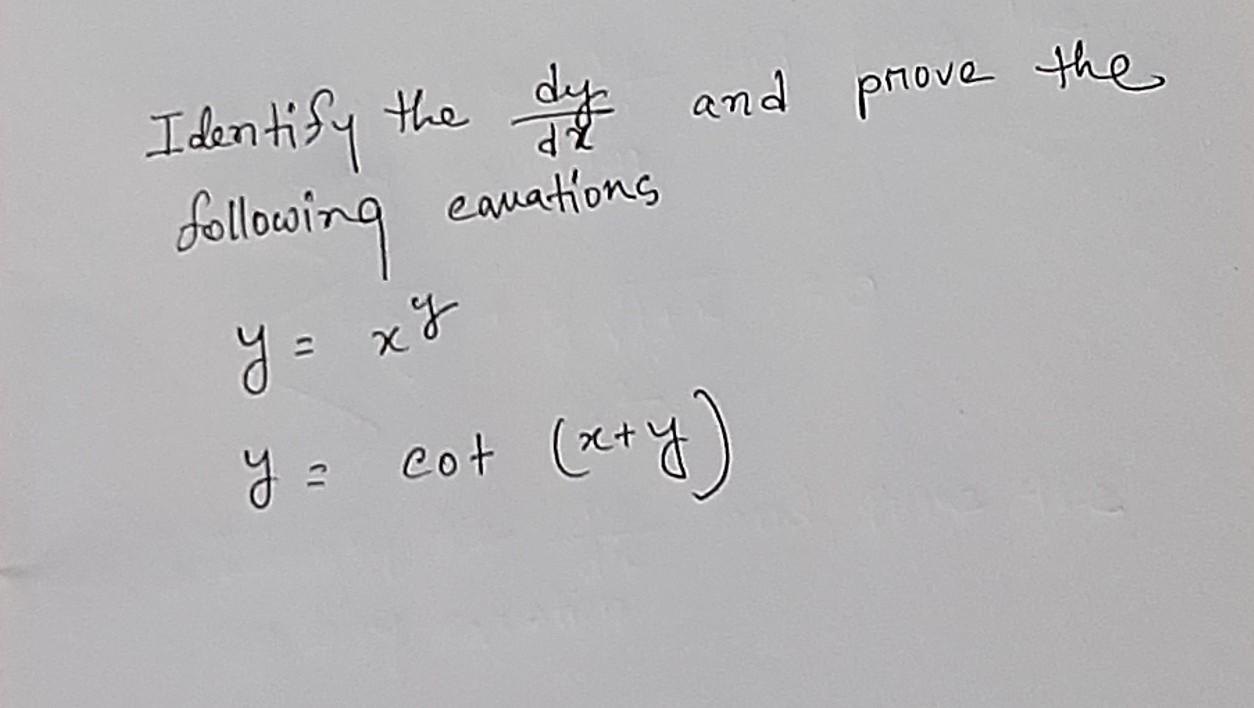 Identify the dy/dx and prove the
following eauations
y = x^y
y = cot (x+y)